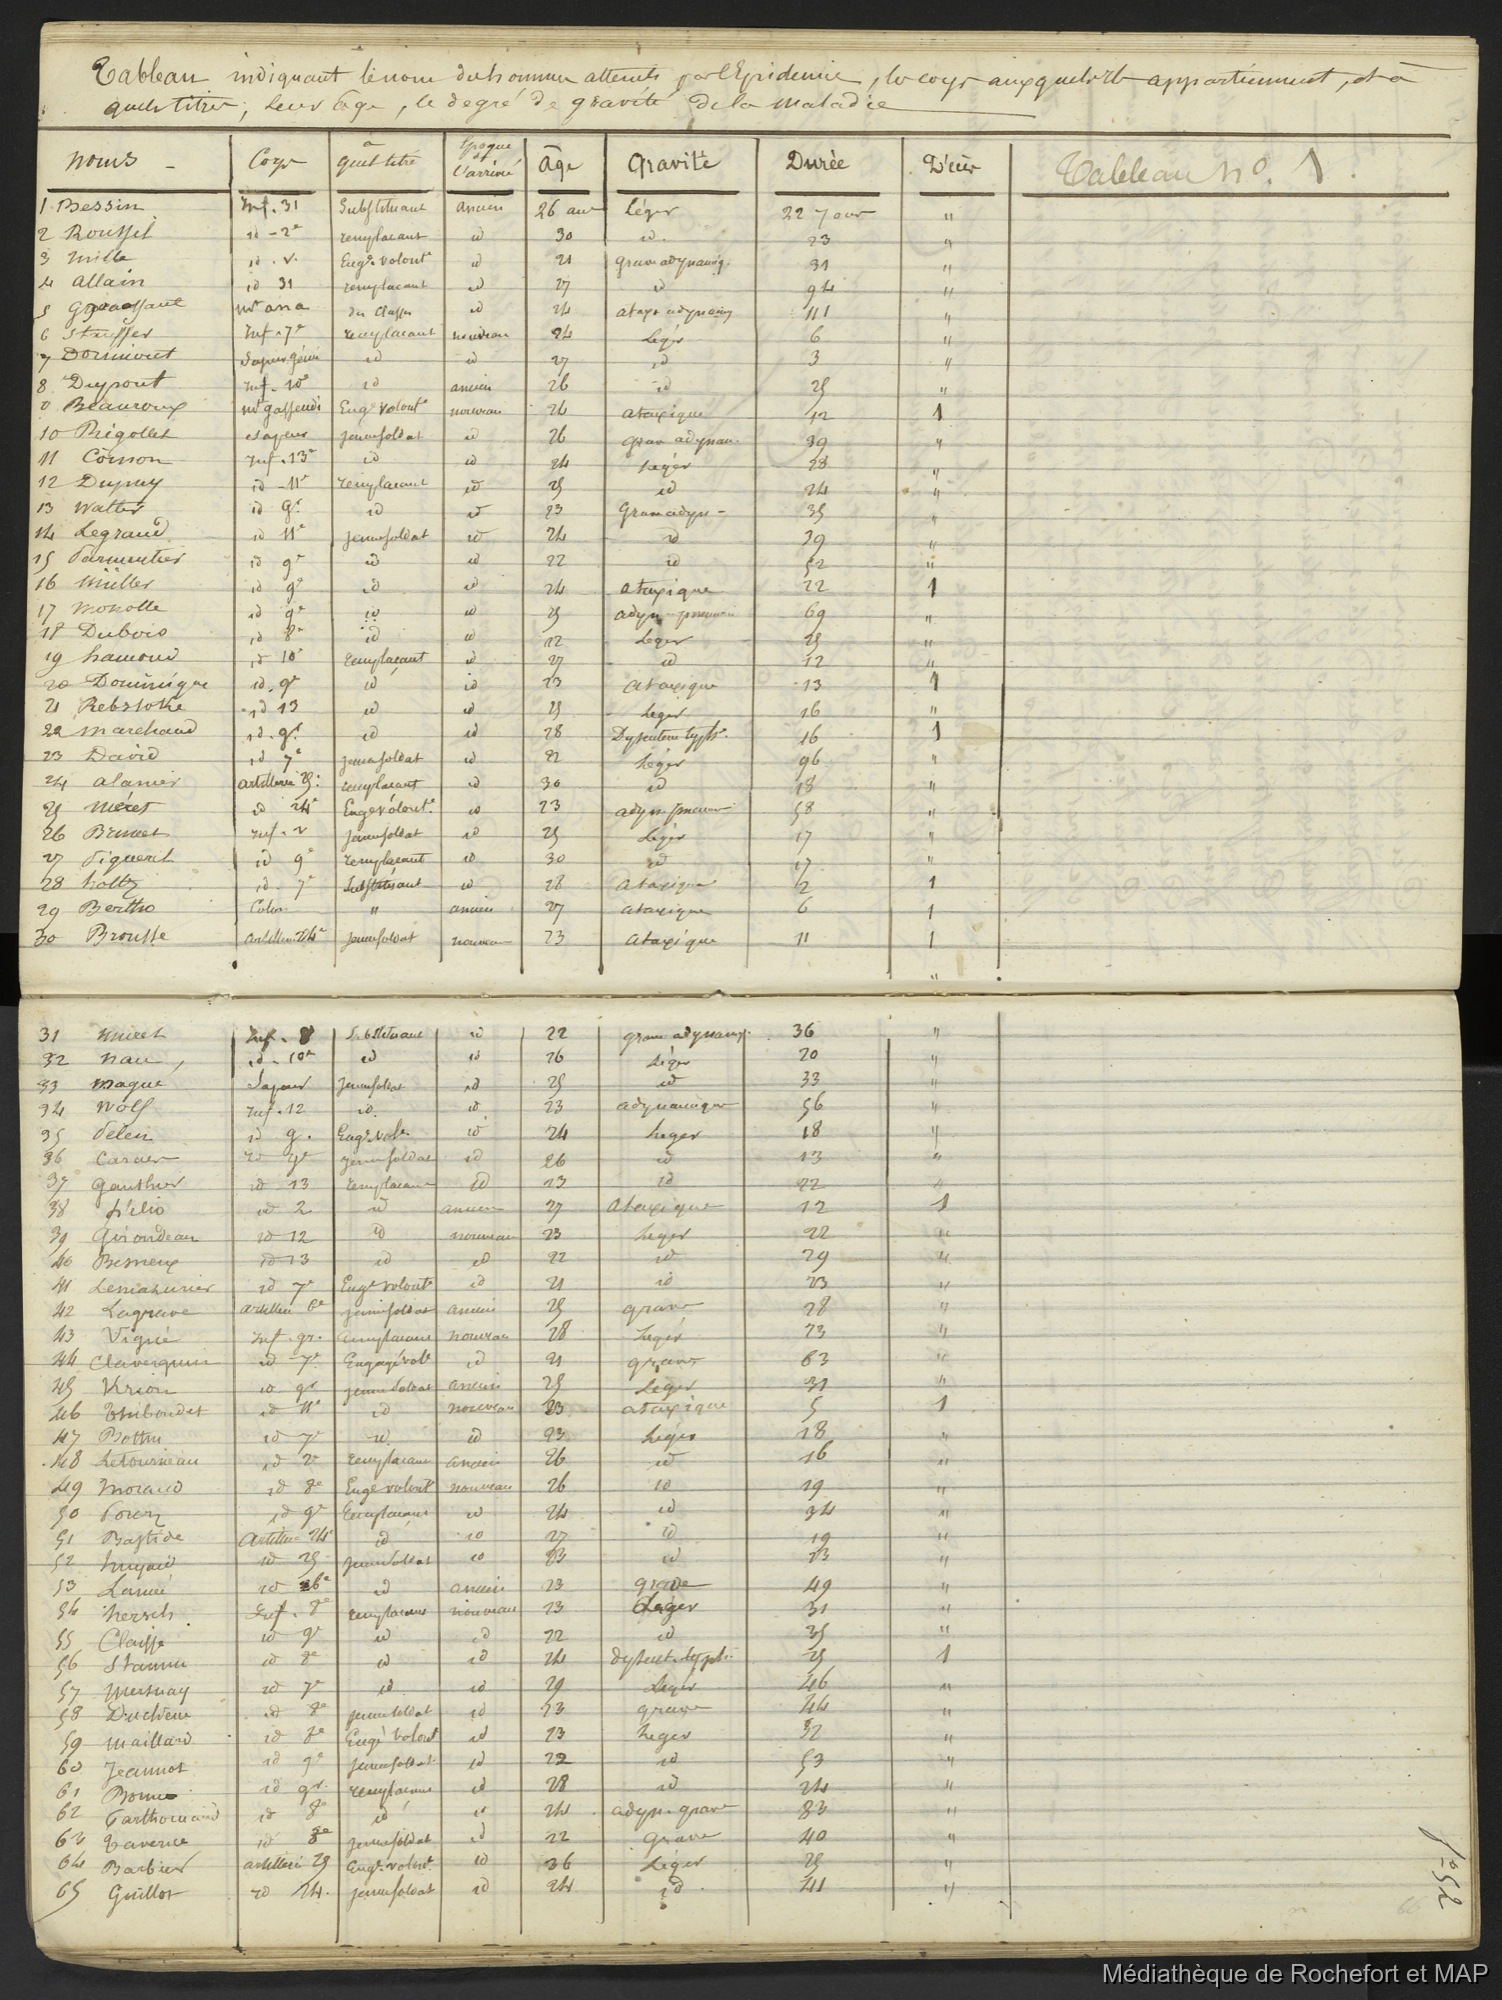 Tableau indiquant le nom des hommes atteints par l'Epidemie, les corps auxquels ils appartiennent, et à
quels titres, leur âge, le degré de gravité de la maladie
Noms Corps à quel titre Epoque de l'arrivée âge Gravité Durée Décès Tableau no. 1.
1 Bessin Inf. 31 Substituant ancien 26 ans Léger 22 jours "
2 Roussel id - 2e remplacant id 30 id. 23 "
3 Mille id. Engé. volontre id 21 grave adynamiq. 31 "
4 allain id 31 remplacant id 27 id 94 "
5 inf ana des classes id 24 ataxo adynamiq 111 "
6 Inf. 7e remplacant nouveau 24 Léger 6 "
7 Dormont Sapeur génie id id 27 id 3 "
8 Dupont Inf. 10e id ancien 26 id 25 "
9 Beauroux Engé volontre nouveau 26 ataxique 12 1
10 Rigollet Sapeur jeune soldat id 26 grav adynam. 39 "
11 Cornon Inf. 13e id id 24 Léger 28 "
12 Dupuy id - 11e remplacant id 25 id 24 "
13 Walter id 9e id id 23 Grave adyn - 35 "
14 Legrand id 11e jeune soldat id 24 id 39 "
15 Parmentier id 9e id id 22 id 52 "
16 Müller id 9e id id 24 ataxique 22 1
17 Monolle id 9e id id 25 adyn - pneumon 69 "
18 Dubois id 8e id id 22 Léger 25 "
19 hamond id 10e remplaçant id 27 id 12 "
20 Dominique id. 9e id id 23 ataxique 13 1
21 Rebstoke id 13 id id 25 Léger 16 "
22 Marchand id. 9e id id 28 Dysenterie typh. 16 1
23 David id 7e jeune soldat id 22 Léger 96 "
24 alanier artillerie 25e remplacant id 30 id 18 "
25 Meret id 24e Engé volontre id 23 adyn pneum 58 "
26 Brunet Inf. jeune soldat id 25 Léger 17 "
27 Piquerel id 9e remplacant id 30 id 17 "
28 holtz id - 7e Substituant id 28 ataxique 2 1
29 Bertho Colon " ancien 27 ataxique 6 1
30 Brousse artillerie 24e jeune soldat nouveau 23 ataxique 11 1
"
31 Inf. 8 Substituant id 22 grave adynamiq. 36 "
32 Nau id. 10e id id 26 Léger 20 "
33 Maque Sapeur jeune soldat id 25 id 33 "
34 Wolf Inf. 12 id. id 23 adynamique 56 "
35 Pelen id 9. Engé. vol. id 24 Leger 18 "
36 Carner id 9e jeune soldat id 26 id 13 "
37 Gauthier id 13 remplacant id 23 id 22 "
38 id 2 id ancien 27 ataxique 12 1
39 Girondeau id 12 id nouveau 23 Leger 22 "
40 Besneux id 13 id id 22 id 29 "
41 Lemazurier id 7e Engé volontre id 21 id 23 "
42 Lagrave artillerie 6e jeune soldat ancien 25 grave 28 "
43 Vigné Inf. gr. remplacant nouveau 28 Leger 23 "
44 Claverquin id 7e Engagé vol. id 21 grave 63 "
45 Vrion id 9e jeune soldat ancien 25 Leger 31 "
46 Thiboudet id 11e id nouveau 23 ataxique 5 1
47 Bottin id 7e id. id 23 Léger 18 "
48 Letourneau id 2e remplacant ancien 26 id 16 "
49 Morand id 8e Engé volontre nouveau 26 id 19 "
50 Poren id 9e remplacant id 24 id 34 "
51 Bastide artillerie 24e id id 27 id 19 "
52 id 25 jeune soldat id 23 id 23 "
53 Lamé id 26e id ancien 23 grave 49 "
54 hersch Inf. 8e remplacant nouveau 23 Leger 31 "
55 Claisse id 9e id id 22 id 35 "
56 Stamm id 8e id id 24 dysent. typh. 25 1
57 Mesnay id 7e id id 29 Leger 46 "
58 Duchêne id 8e jeune soldat id 23 grave 44 "
59 Maillard id 7e Engé volont id 23 Leger 32 "
60 Jeannot id 9e jeune soldat id 22 id 53 "
61 id gr. remplacant id 28 id 24 "
62 id 8e id id 24 adyn. grave 83 "
63 Taverne id 8e jeune soldat id 22 grave 40 "
64 Barbier artillerie 25 Engé. volontre. id 36 Léger 25 "
65 Guillot id 24. jeune soldat id 24 id. 41 "
fo 52
66
Médiathèque de Rochefort et MAP